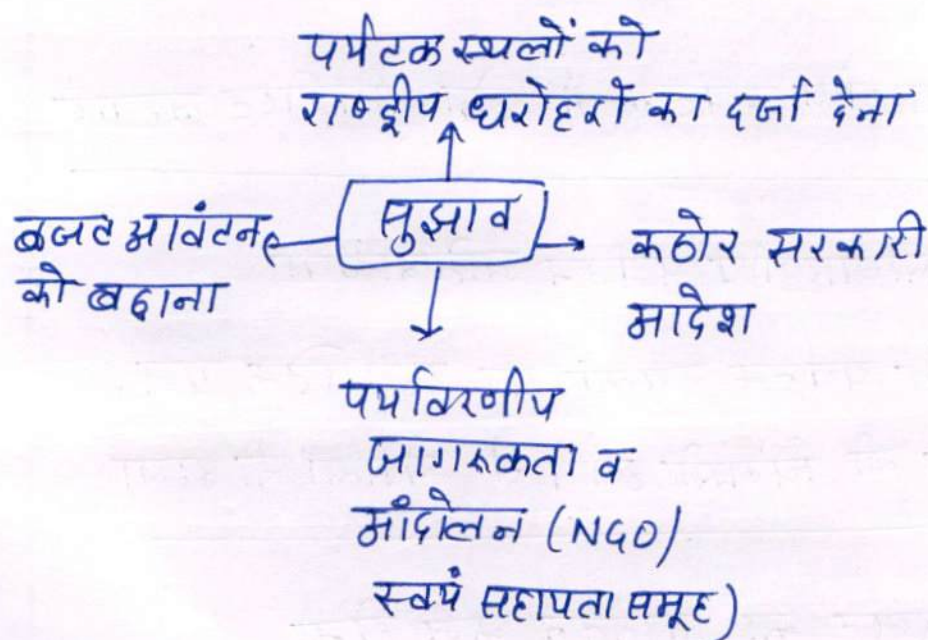 पर्यटक स्थलों को
राष्ट्रीय धरोहरों का दर्जा देना
सुझाव
बजट आवंटन
को बढ़ाना
कठोर सरकारी
आदेश
पर्यावरणीय
जागरूकता व
आंदोलन (NGO/
स्वयं सहायता समूह)